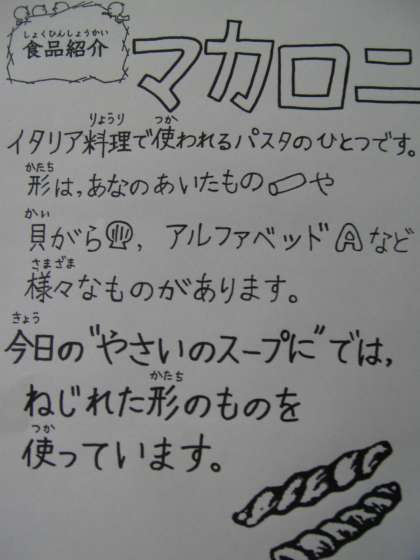 しょくひんしょうかい
食品紹介
マカロニ
りょうり つか
イタリア料理で使われるパスタのひとつです。
かたち
形は,あなのあいたものや
かい
貝がら, アルファベッドAなど
さまざま
様々なものがあります。
きょう
今日の"やさいのスープに"では,
かたち
ねじれた形のものを
つか
使っています。